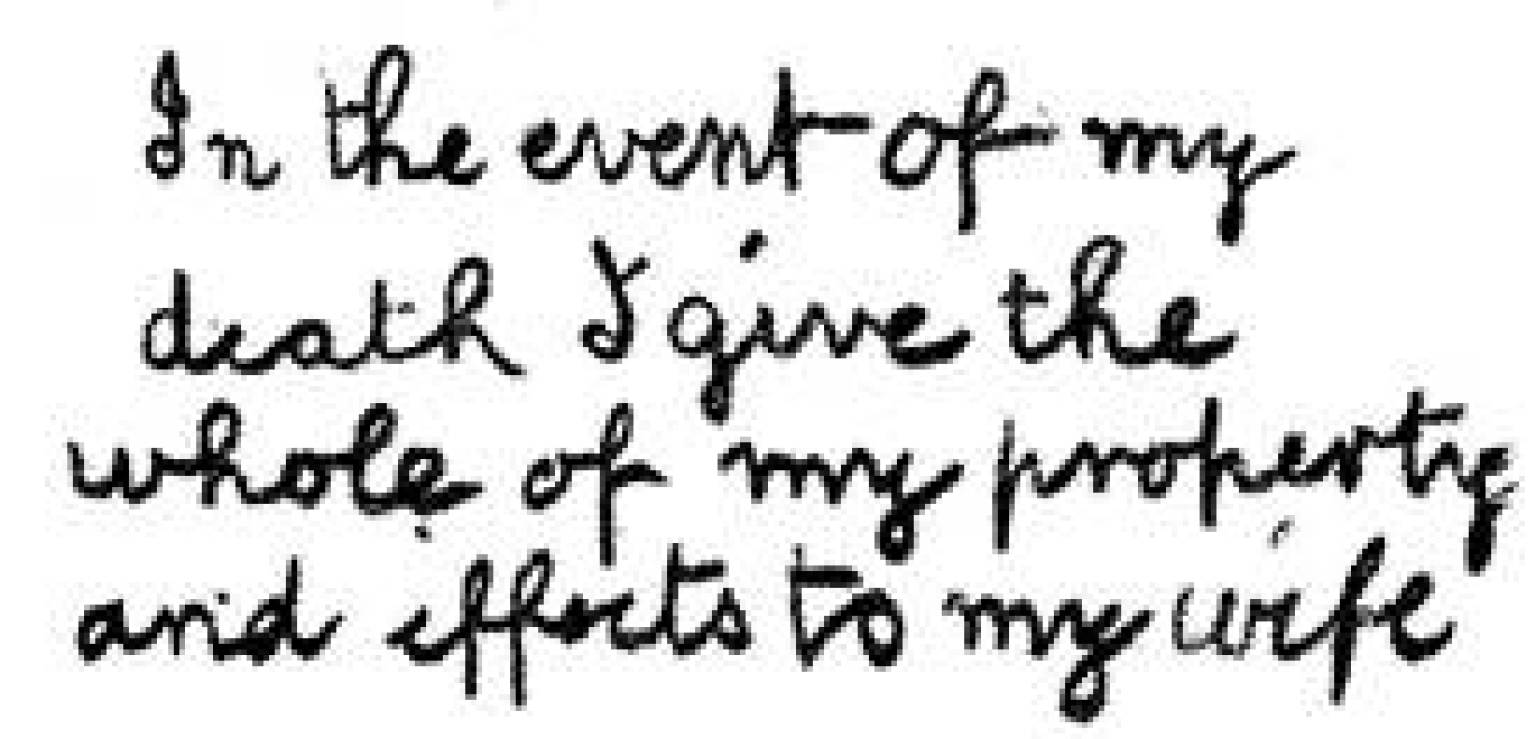 In the event of my
death I give the
whole of my property
and effects to my wife